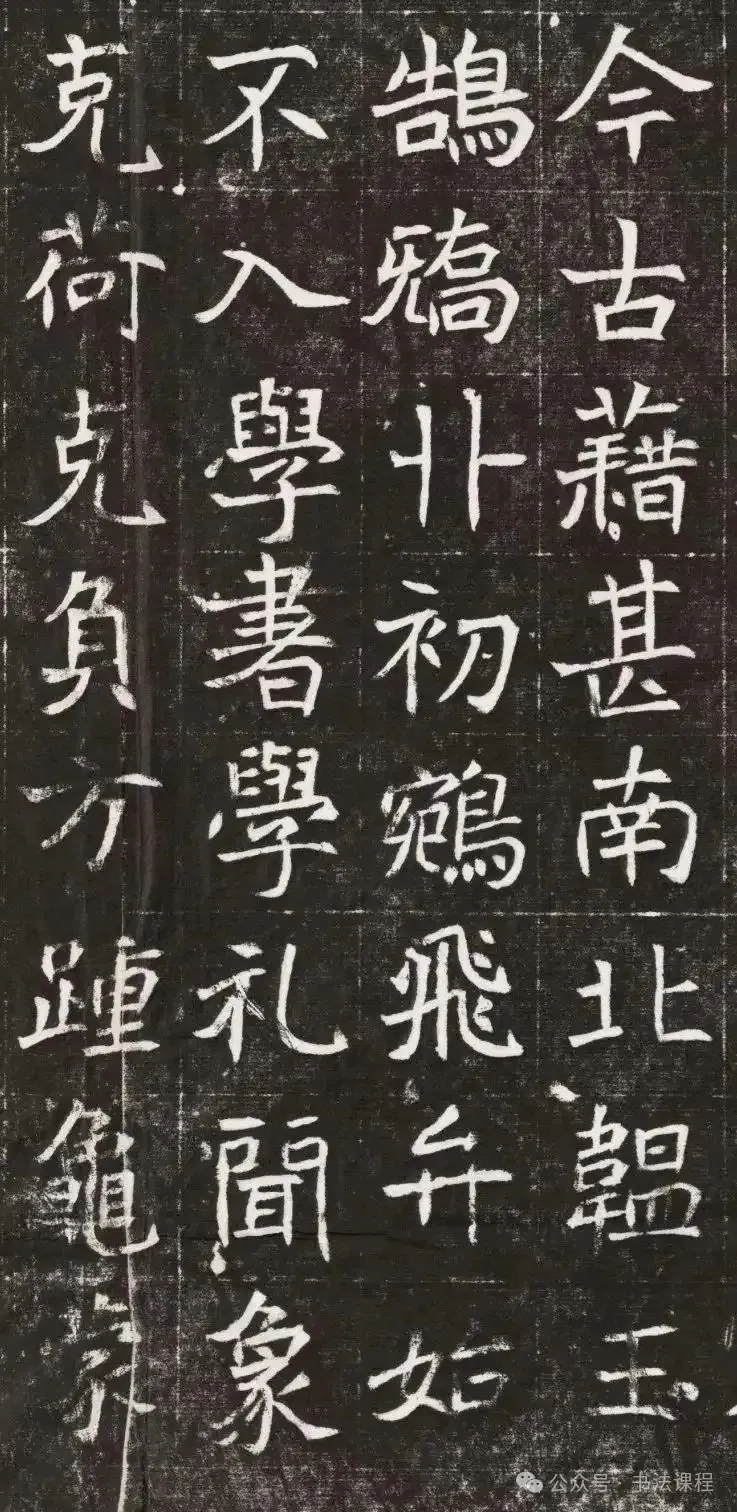 今古藉甚南北韞玉
鵠矯卝初鵷飛弁始
不入學書學礼聞象
克荷克負方踵龜
公众号·书法课程